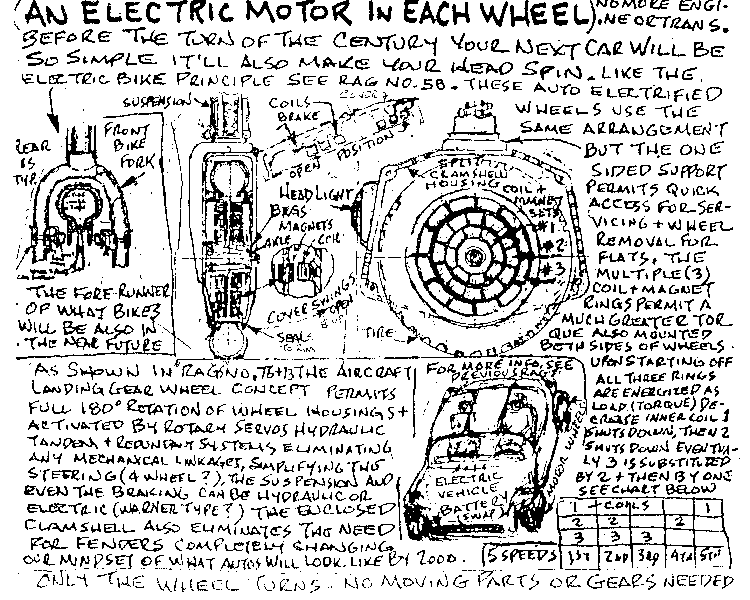 (AN ELECTRIC MOTOR IN EACH WHEEL)
NO MORE ENGI-
NE OR TRANS.
BEFORE THE TURN OF THE CENTURY YOUR NEXT CAR WILL BE
SO SIMPLE IT'LL ALSO MAKE YOUR HEAD SPIN. LIKE THE
ELECTRIC BIKE PRINCIPLE SEE RAG NO. 58. THESE AUTO ELECTRIFIED
WHEELS USE THE
SAME ARRANGEMENT
BUT THE ONE
SIDED SUPPORT
PERMITS QUICK
ACCESS FOR SER-
VICING + WHEEL
REMOVAL FOR
FLATS. THE
MULTIPLE (3)
COIL + MAGNET
RINGS PERMIT A
MUCH GREATER TOR
QUE ALSO MOUNTED
BOTH SIDES OF WHEELS.
UPON STARTING OFF
ALL THREE RINGS
ARE ENERGIZED AS
LOAD (TORQUE) DE-
CREASE INNER COIL 1
SHUTS DOWN, THEN 2
SHUTS DOWN EVENTUA-
LY 3 IS SUBSTITUTED
BY 2 + THEN BY ONE
SEE CHART BELOW
SUSPENSION
COILS
BRAKE
OPEN
POSITION
FRONT
BIKE
FORK
REAR
IS
TYP.
HEADLIGHT
BRGS
MAGNETS
AXLE
COIL
COVER SWINGS
OPEN
SEAL
SPLIT
CLAMSHELL
HOUSING
COIL +
MAGNET
SETS
#1
#2
#3
TIRE
THE FORE-RUNNER
OF WHAT BIKES
WILL BE ALSO IN
THE NEAR FUTURE
AS SHOWN IN RAG NO. THE AIRCRAFT
LANDING GEAR WHEEL CONCEPT PERMITS
FULL 180° ROTATION OF WHEEL HOUSINGS +
ACTIVATED BY ROTARY SERVOS HYDRAULIC
TANDEM + REDUNDANT SYSTEMS ELIMINATING
ANY MECHANICAL LINKAGES, SIMPLIFYING THE
STEERING (4 WHEEL?), THE SUSPENSION AND
EVEN THE BRAKING CAN BE HYDRAULIC OR
ELECTRIC (WARNER TYPE?) THE ENCLOSED
CLAMSHELL ALSO ELIMINATES THE NEED
FOR FENDERS COMPLETELY CHANGING
OUR MINDSET OF WHAT AUTOS WILL LOOK LIKE BY 2000.
FOR MORE INFO. SEE
PREVIOUS RAGS
ELECTRIC
VEHICLE
BATTERY
(SWAP)
MOTOR WHEEL
1 - COILS 1
2 2 2
3 3 3
5 SPEEDS 1ST 2ND 3RD 4TH 5TH
ONLY THE WHEEL TURNS. NO MOVING PARTS OR GEARS NEEDED